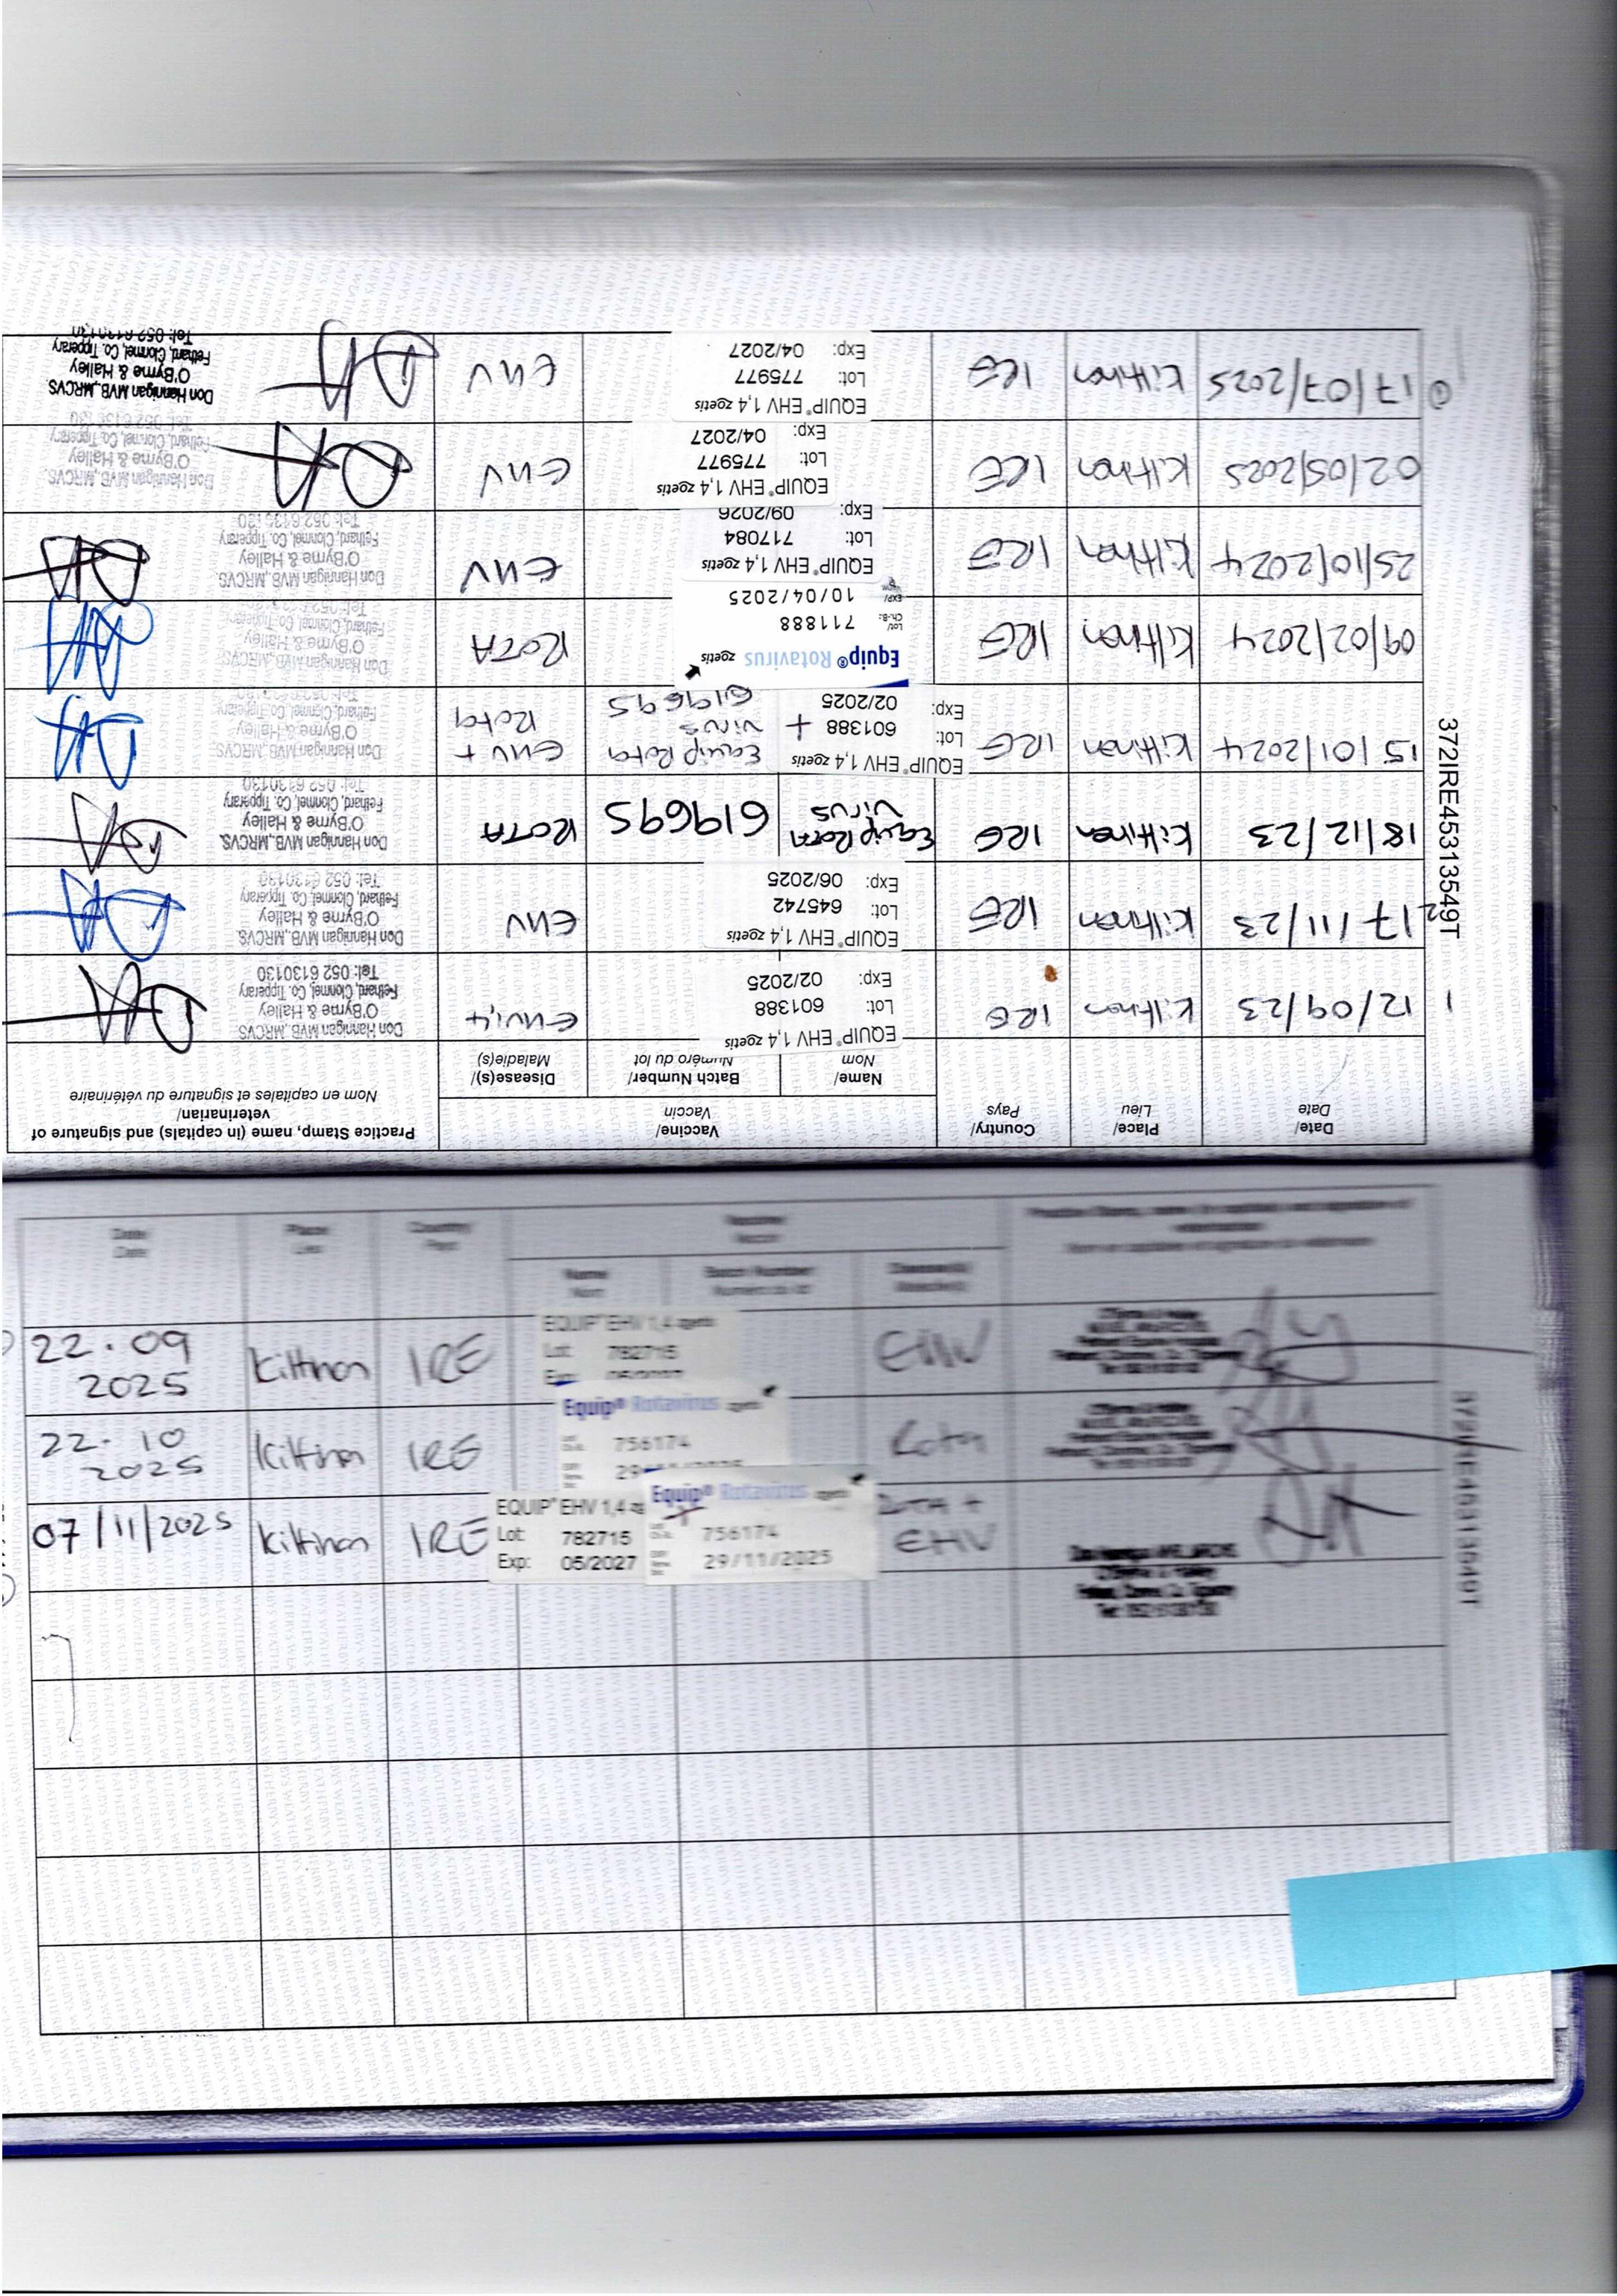 372IRE45313549T
Date/
Date
Place/
Lieu
Country/
Pays
Vaccine/
Vaccin
Name/
Nom
Batch Number/
Numéro du lot
Disease(s)/
Maladie(s)
Practice Stamp, name (in capitals) and signature of
veterinarian/
Nom en capitales et signature du vétérinaire
1
12/09/23
Kiltinan
IRE
EQUIP® EHV 1,4 zoetis
Lot: 601388
Exp: 02/2025
EHV1,4
Don Hannigan MVB, MRCVS.
O'Byrne & Halley
Fethard, Clonmel, Co. Tipperary
Tel: 052 6130130
2
17/11/23
Kiltinan
IRE
EQUIP® EHV 1,4 zoetis
Lot: 645742
Exp: 06/2025
EHV
Don Hannigan MVB, MRCVS.
O'Byrne & Halley
Fethard, Clonmel, Co. Tipperary
Tel: 052 6130130
18/12/23
Kiltinan
IRE
Equip Rota
Virus
619695
ROTA
Don Hannigan MVB, MRCVS.
O'Byrne & Halley
Fethard, Clonmel, Co. Tipperary
Tel: 052 6130130
15/01/2024
Kiltinan
IRE
EQUIP® EHV 1,4 zoetis
Lot: 601388 +
Exp: 02/2025
Equip Rota
Virus
619695
EHV +
Rota
Don Hannigan MVB, MRCVS.
O'Byrne & Halley
Fethard, Clonmel, Co. Tipperary
09/02/2024
Kiltinan
IRE
Equip® Rotavirus zoetis
Lot/
Ch.-B.: 711888
EXP/ 10/04/2025
ROTA
Don Hannigan MVB, MRCVS.
O'Byrne & Halley
Fethard, Clonmel, Co. Tipperary
25/10/2024
Kiltinan
IRE
EQUIP® EHV 1,4 zoetis
Lot: 717084
Exp: 09/2026
EHV
Don Hannigan MVB, MRCVS.
O'Byrne & Halley
Fethard, Clonmel, Co. Tipperary
Tel: 052 6130130
02/05/2025
Kiltinan
IRE
EQUIP® EHV 1,4 zoetis
Lot: 775977
Exp: 04/2027
EHV
Don Hannigan MVB, MRCVS.
O'Byrne & Halley
Fethard, Clonmel, Co. Tipperary
17/07/2025
Kiltinan
IRE
EQUIP® EHV 1,4 zoetis
Lot: 775977
Exp: 04/2027
EHV
Don Hannigan MVB, MRCVS
O'Byrne & Halley
Fethard, Clonmel, Co. Tipperary
Tel: 052 6130130
Date/
Date
Place/
Lieu
Country/
Pays
Vaccine/
Vaccin
Name/
Nom
Batch Number/
Numéro du lot
Disease(s)/
Maladie(s)
22.09
2025
Kiltinan
IRE
EQUIP® EHV 1,4 zoetis
Lot: 782715
EHV
22.10
2025
Kiltinan
IRE
Equip® Rotavirus zoetis
756174
Rota
07/11/2025
Kiltinan
IRE
EQUIP® EHV 1,4
Lot: 782715
Exp: 05/2027
Equip® Rotavirus zoetis
756174
29/11/2025
Rota +
EHV
372IRE45313549T